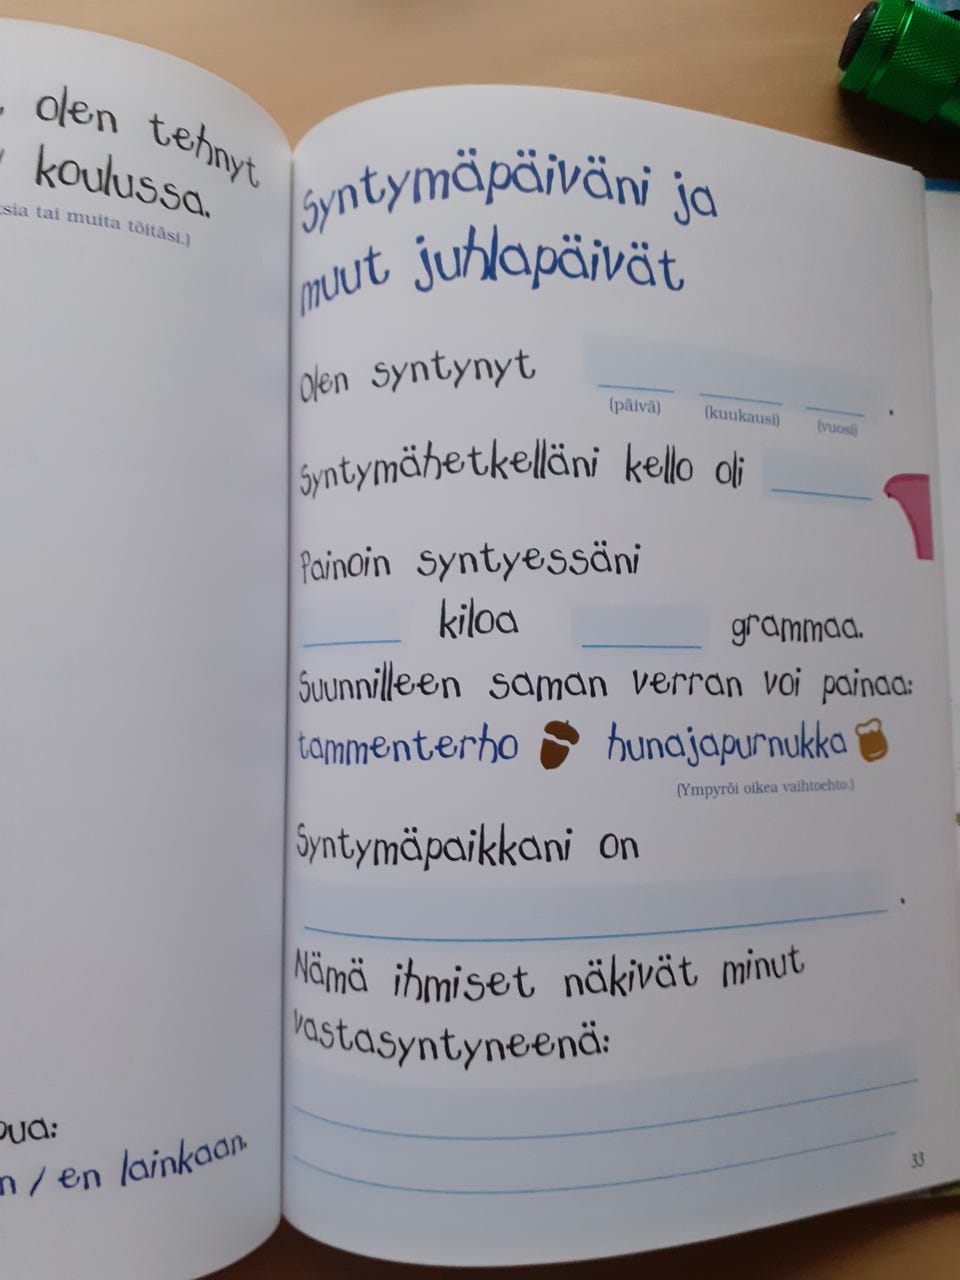 olen tehnyt
koulussa.
tai muita töitäsi.)
lainkaan.
/ en
Syntymäpäiväni ja
muut juhlapäivät
Olen syntynyt
(päivä) (kuukausi) (vuosi) .
Syntymähetkelläni kello oli
Painoin syntyessäni
kiloa grammaa.
Suunnilleen saman verran voi painaa:
tammenterho hunajapurnukka
(Ympyröi oikea vaihtoehto.)
Syntymäpaikkani on
.
Nämä ihmiset näkivät minut
vastasyntyneenä:
33